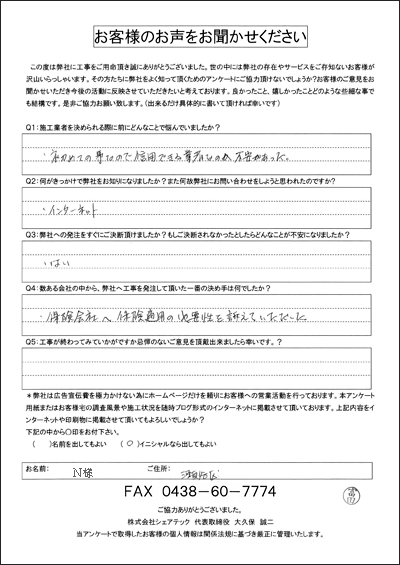 お客様のお声をお聞かせください
この度は弊社に工事をご用命頂き誠にありがとうございました。世の中には弊社の存在やサービスをご存知ないお客様が
沢山いらっしゃいます。その方たちに弊社をよく知って頂くためのアンケートにご協力頂けないでしょうか?お客様のご意見をお
聞かせいただき今後の活動に反映させていただきたいと考えております。良かったこと、嬉しかったことどのような些細な事で
も結構です。是非ご協力お願い致します。(出来るだけ具体的に書いて頂ければ幸いです)
Q1:施工業者を決められる際に前にどんなことで悩んでいましたか?
・初めての事なので信用できる業者なのか、不安があった。
Q2:何がきっかけで弊社をお知りになりましたか?また何故弊社にお問い合わせをしようと思われたのですか?
・インターネット
Q3:弊社への発注をすぐにご決断頂けますか?もしご決断されなかったとしたらどんなことが不安になりましたか?
・はい
Q4:数ある会社の中から、弊社へ工事を発注して頂いた一番の決め手は何でしたか?
・保険会社へ保険適用の必要性を訴えていただいた
Q5:工事が終わってみていかがですか忌憚のないご意見を頂戴出来ましたら幸いです。?
*弊社は広告宣伝費を極力かけない為にホームページだけを頼りにお客様への営業活動を行っております。本アンケート
用紙またはお客様宅の調査風景や施工状況を随時ブログ形式のインターネットに掲載させて頂いております。上記内容をイ
ンターネットや印刷物に掲載させて頂いてもよろしいでしょうか?
下記の中から〇印をお付下さい。
( )名前を出してもよい ( 〇 )イニシャルなら出してもよい
お名前: N様 ご住所:
FAX 0438-60-7774
ご協力ありがとうございました。
株式会社シェアテック 代表取締役 大久保 誠二
当アンケートで取得したお客様の個人情報は関係法規に基づき厳正に管理いたします。